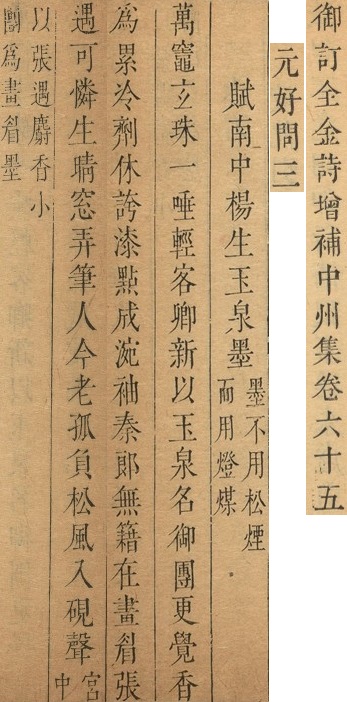 御訂全金詩增補中州集卷六十五
元好問三
賦南中楊生玉泉墨墨不用松煙
而用燈煤
萬竈玄珠一唾輕客卿新以玉泉名御團更覺香
為累冷劑休誇漆點成涴袖秦郎無籍在畫睂張
遇可憐生晴窓弄筆人今老孤負松風入硯聲宮
中
以張遇麝香小
團為畫睂墨